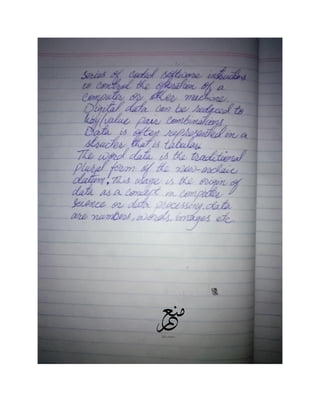 series of coded software instructions
to control the operation of a
computer or other machine.
Digital data can be reduced to
key/value pair combinations.
Data is often represented in a
structer that is tabular.
The word data is the traditional
plural form of the now-archaic
datum. This usage is the origin of
data as a concept in computer
Science or data processing, data
are numbers, words, images etc